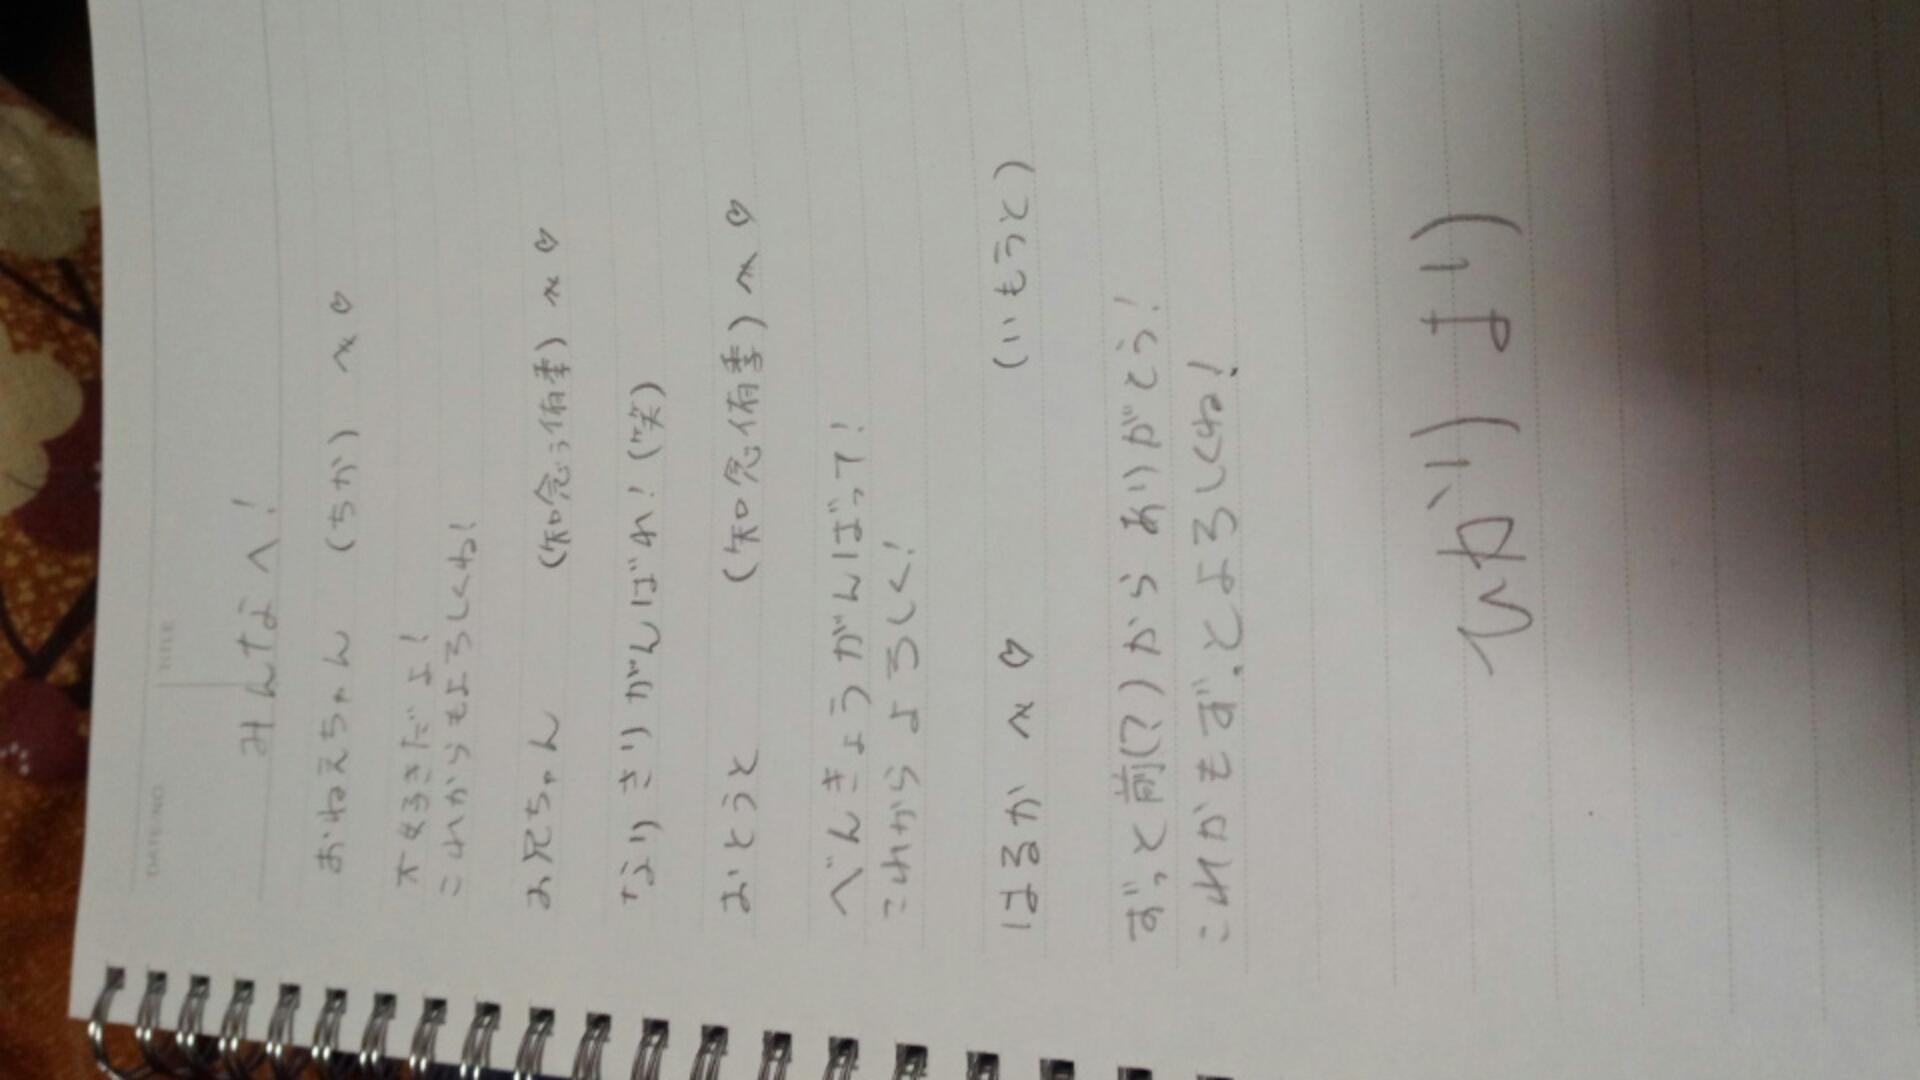 DATE/NO. TITLE
みんなへ!
おねえちゃん (ちか) へ♡
大好きだよ!
これからもよろしくね!
お兄ちゃん (知念侑季) へ♡
なりきりがんばれ!(笑)
おとうと (知念侑季) へ♡
べんきょうがんばって!
これからよろしく!
はるかへ♡ (いもうと)
ずっと前(?)からありがとう!
これかもずっとよろしくね!
ひかりより